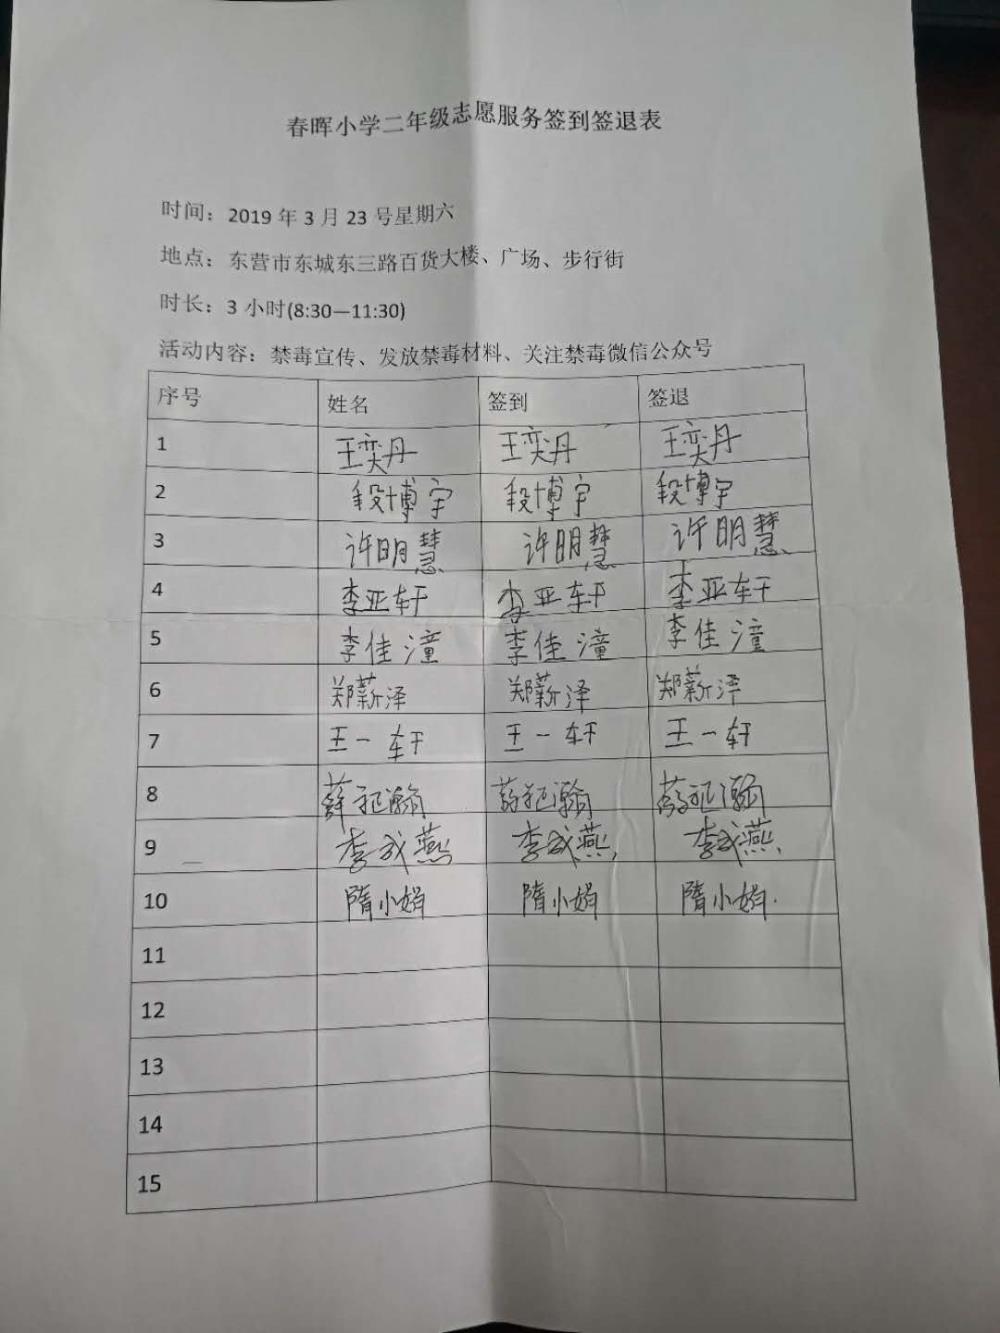 春晖小学二年级志愿服务签到签退表
时间：2019 年 3 月 23 号星期六
地点：东营市东城东三路百货大楼、广场、步行街
时长：3 小时(8:30—11:30)
活动内容：禁毒宣传、发放禁毒材料、关注禁毒微信公众号
序号 姓名 签到 签退
1 王奕丹 王奕丹 王奕丹
2 段博宇 段博宇 段博宇
3 许明慧 许明慧 许明慧
4 李亚轩 李亚轩 李亚轩
5 李佳潼 李佳潼 李佳潼
6 郑薪泽 郑薪泽 郑薪泽
7 王一轩 王一轩 王一轩
8
9 李成燕 李成燕 李成燕
10 隋小娟 隋小娟 隋小娟
11
12
13
14
15